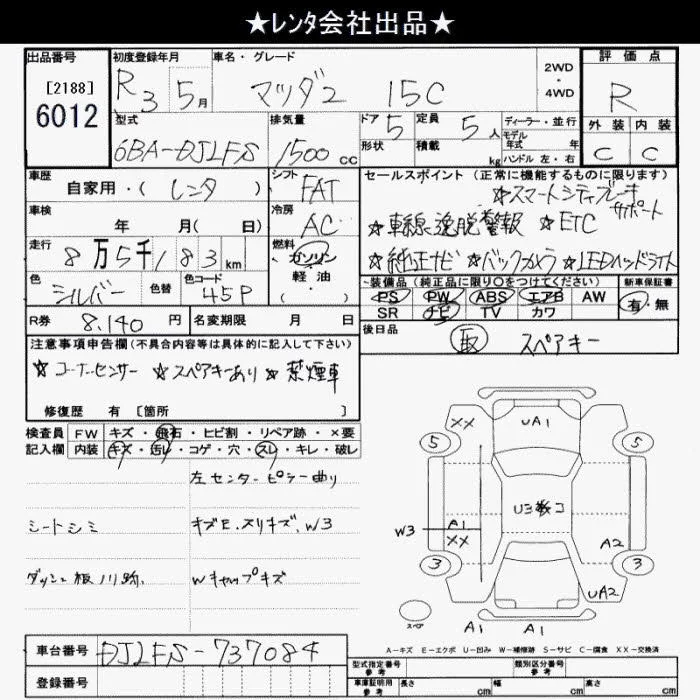 ★レンタ会社出品★
出品番号 初度登録年月 車名・グレード 2WD・4WD 評価点
[2188] 6012 R3 5月 マツダ2 15C R
型式 排気量 ドア 定員 ディーラー・並行 外装 内装
6BA-DJLFS 1500cc 5 5人 モデル年式 年 C C
形状 積載 kg ハンドル 左・右
車歴 シフト セールスポイント (正常に機能するものに限ります)
自家用・( レンタ ) FAT ☆スマートシティブレーキサポート
車検 冷房 ☆車線逸脱警報 ☆ETC
年 月( 日) AC
走行 燃料 ☆純正ナビ ☆バックカメラ ☆LEDヘッドライト
8万5千183km ガソリン 軽・油・( )
色 色替 色コード 装備品 (純正品に限り○をつけてください) 新車保証書
シルバー 45P PS PW ABS エアB AW 有・無
SR ナビ TV カワ
R券 8,140円 名変期限 月 日 後日品
取 スペアキー
注意事項申告欄 (不具合内容等は具体的に記入して下さい)
☆コーナーセンサー ☆スペアキーあり ☆禁煙車
修復歴 有 [箇所 ]
検査員 FW キズ・飛石・ヒビ割・リペア跡・×要
記入欄 内装 キズ・汚レ・コゲ・穴・スレ・キレ・破レ
左センターピラー曲り
シートシミ キズE.スリキズ.W3
Wキャップキズ
XX UA1
5 5
U3
W3 A1 XX A2
3 3
UA2
スペア A1 A1
A-キズ E-エクボ U-凹み W-補修跡 S-サビ C-腐食 XX-交換済
車台番号 DJLFS-737084
型式指定番号 参考 類別区分番号 参考
登録番号
車庫証明用 参考 長さ cm 幅 cm 高さ cm